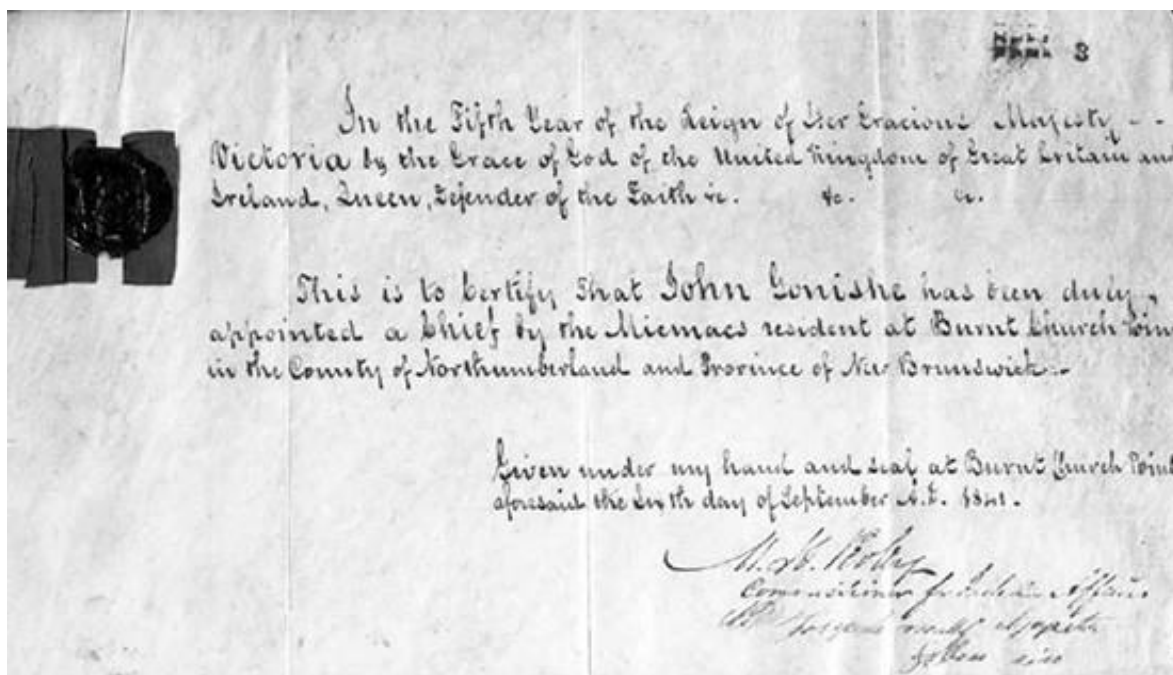 3
In the Fifth Year of the Reign of Her Gracious Majesty - -
Victoria by the Grace of God of the United Kingdom of Great Britain and
Ireland, Queen, Defender of the Faith &c. &c. &c.
This is to Certify That John Gonishe has been duly
appointed a Chief by the Micmacs resident at Burnt Church Poin
in the County of Northumberland and Province of New Brunswick.-
Given under my hand and seal at Burnt Church Point
aforesaid the day of September A.D. 1841.
M. H. Perley
Commissioner for Indian Affairs